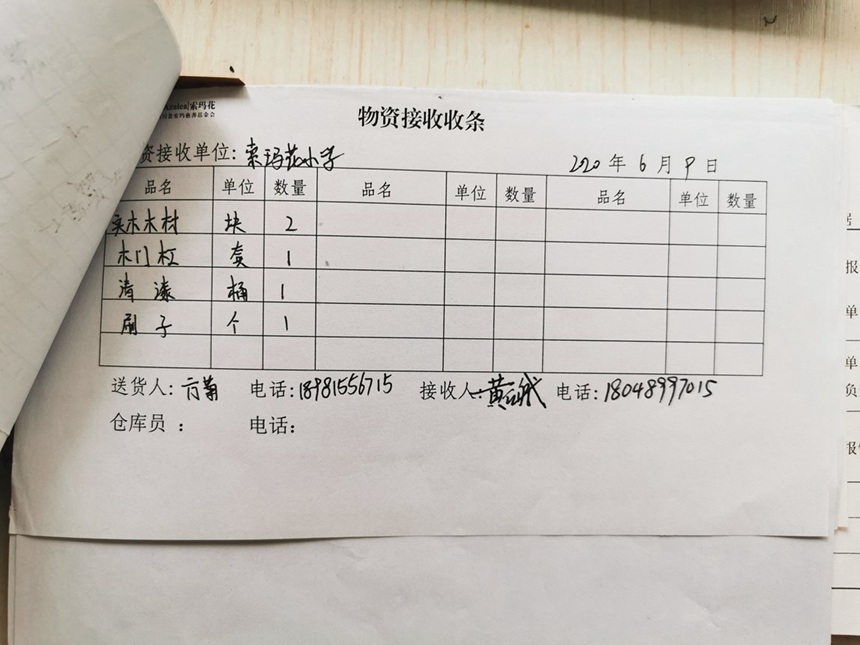 索玛花
物资接收收条
资接收单位：索玛花小学 2020 年 6 月 9 日
品名 单位 数量 品名 单位 数量 品名 单位 数量
实木木材 块 2
木门杠 套 1
清漆 桶 1
刷子 个 1
送货人： 电话：18981556715 接收人： 电话：18048997015
仓库员 ： 电话：
报
单
单
负
报